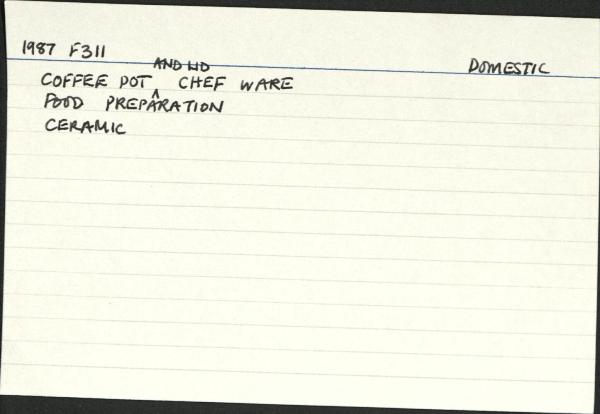 1987 F311
AND LID
DOMESTIC
COFFEE POT ^ CHEF WARE
FOOD PREPARATION
CERAMIC